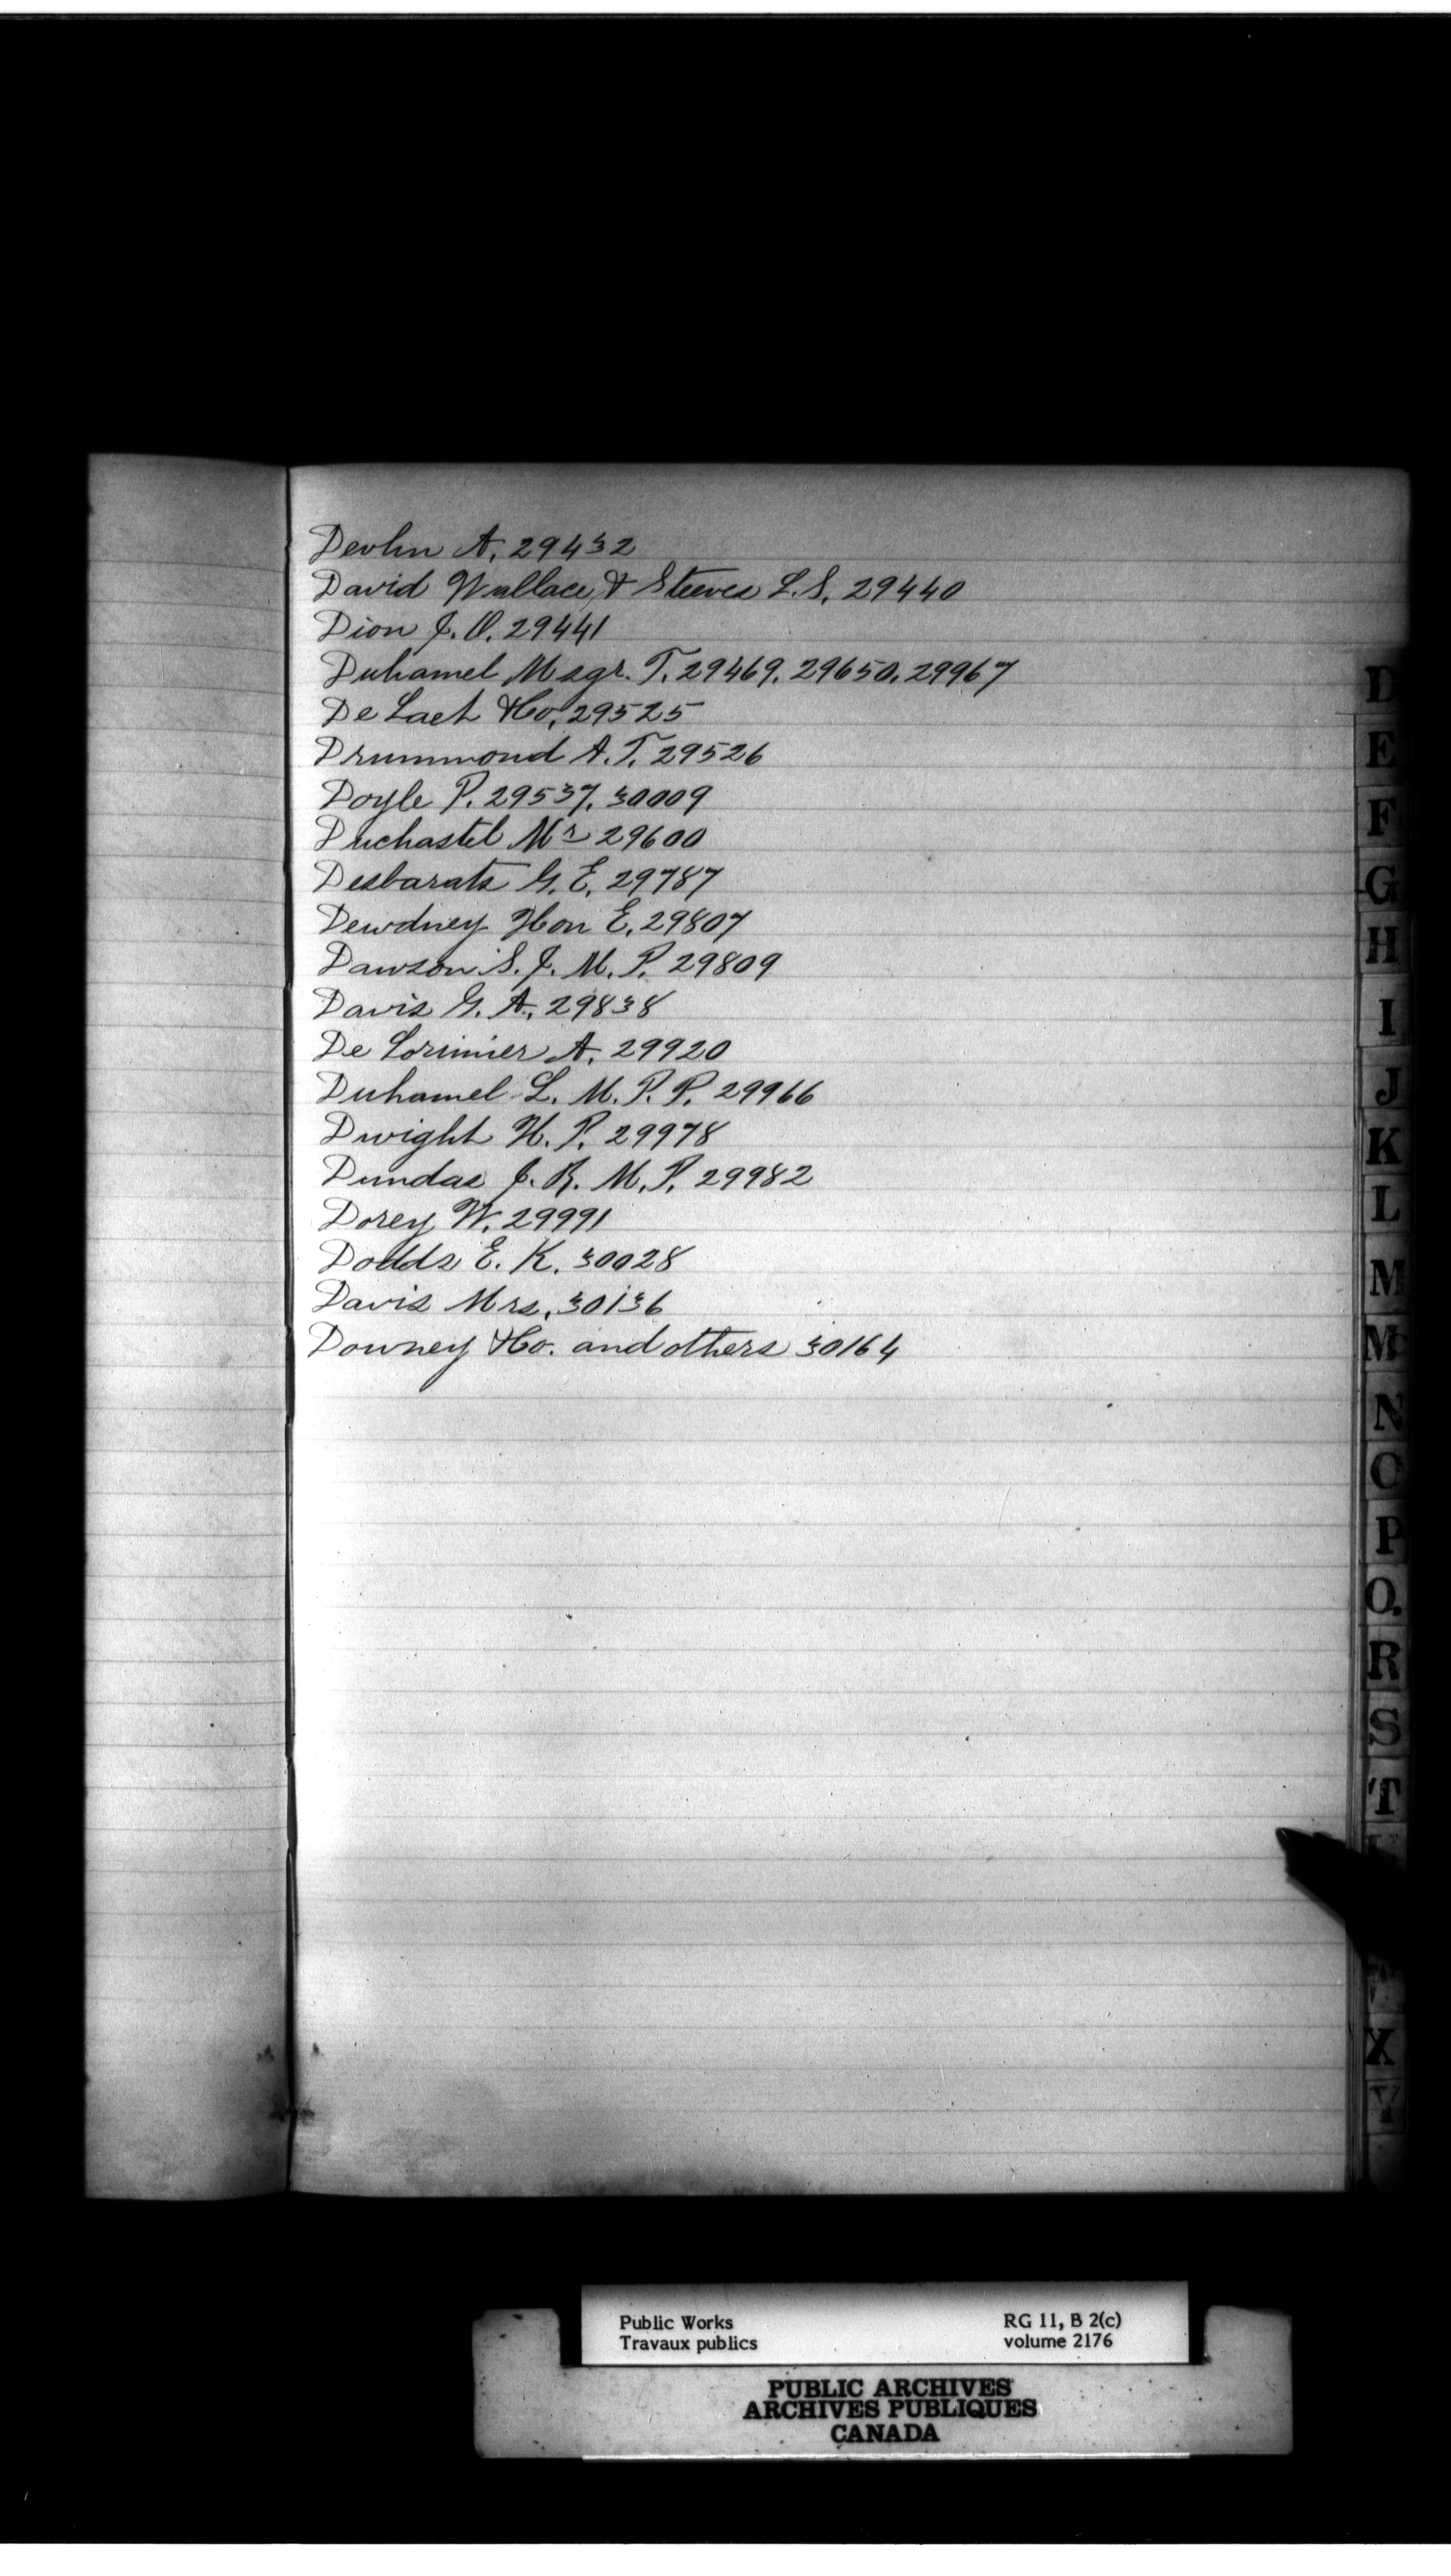 Devlin A. 29432
David Wallace, & Steeves L.S. 29440
Dion J. O. 29441
Duhamel Msgr. T. 29469. 29650. 29967
De Laet & Co. 29525
Drummond A.T. 29526
Doyle P. 29537. 30009
Duchastel Mr 29600
Desbarats G. E. 29787
Dewdney Hon E. 29807
Dawson S. J. M. P. 29809
Davis G. A. 29838
De Lorimier A. 29920
Duhamel L. M. P. P. 29966
Dwight H. P. 29978
Dundas J. R. M. P. 29982
Dorey W. 29991
Dodds E. K. 30028
Davis Mrs. 30136
Downey & Co. and others 30164
D
E
F
G
H
I
J
K
L
M
Mc
N
O
P
Q.
R
S
T
X
Y
Public Works RG 11, B 2(c)
Travaux publics volume 2176
PUBLIC ARCHIVES
ARCHIVES PUBLIQUES
CANADA